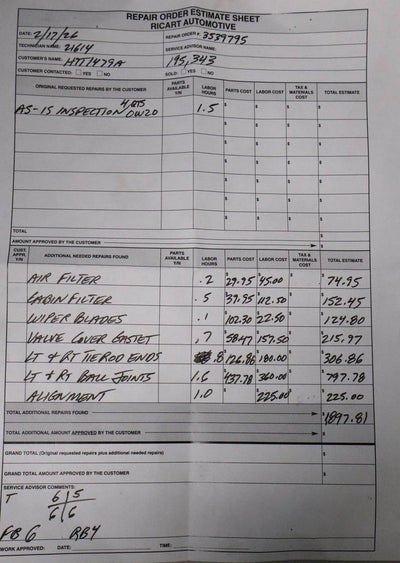 REPAIR ORDER ESTIMATE SHEET
RICART AUTOMOTIVE
DATE: 2/17/26 REPAIR ORDER #: 3539795
TECHNICIAN NAME: 21614 SERVICE ADVISOR NAME:
CUSTOMER'S NAME: HTT1479A 195,343
CUSTOMER CONTACTED: YES NO SOLD: YES NO
ORIGINAL REQUESTED REPAIRS BY THE CUSTOMER PARTS AVAILABLE Y/N LABOR HOURS PARTS COST LABOR COST TAX & MATERIALS COST TOTAL ESTIMATE
AS-IS INSPECTION 4 QTS 0W20 1.5 $ $ $ $
TOTAL $
AMOUNT APPROVED BY THE CUSTOMER $
CUST. APPR. Y/N ADDITIONAL NEEDED REPAIRS FOUND PARTS AVAILABLE Y/N LABOR HOURS PARTS COST LABOR COST TAX & MATERIALS COST TOTAL ESTIMATE
AIR FILTER .2 $29.95 $45.00 $ $74.95
CABIN FILTER .5 $39.95 $112.50 $ $152.45
WIPER BLADES .1 $102.30 $22.50 $ $124.80
VALVE COVER GASKET .7 $58.47 $157.50 $ $215.97
LT & RT TIEROD ENDS .8 $126.86 $180.00 $ $306.86
LT & RT BALL JOINTS 1.6 $437.78 $360.00 $ $797.78
ALIGNMENT 1.0 $ $225.00 $ $225.00
TOTAL ADDITIONAL REPAIRS FOUND $1897.81
TOTAL ADDITIONAL AMOUNT APPROVED BY THE CUSTOMER $
GRAND TOTAL (Original requested repairs plus additional needed repairs) $
GRAND TOTAL AMOUNT APPROVED BY THE CUSTOMER $
SERVICE ADVISOR COMMENTS:
T 6 5
6 6
FB 6 RB 4
WORK APPROVED: DATE: TIME: